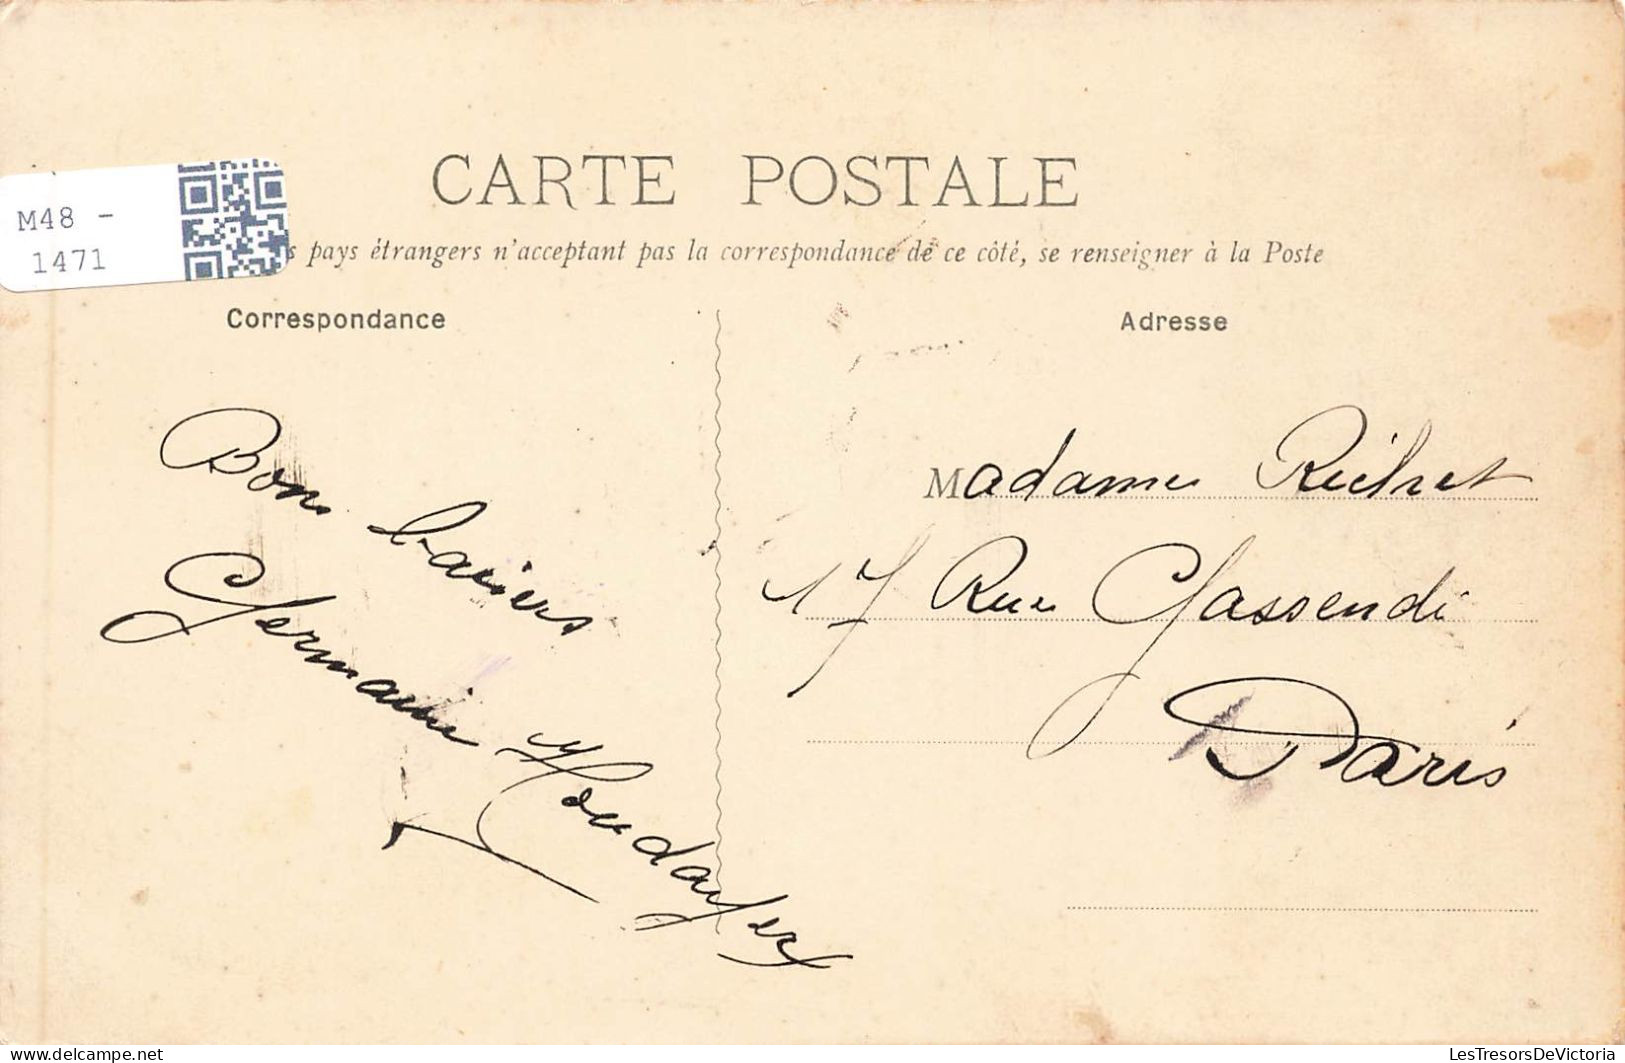 CARTE POSTALE
s pays étrangers n'acceptant pas la correspondance de ce côté, se renseigner à la Poste
M48 -
1471
Correspondance
Adresse
Bons baisers
Germaine
Madame
17 Rue Gassendi
Paris
LesTresorsDeVictoria
delcampe.net